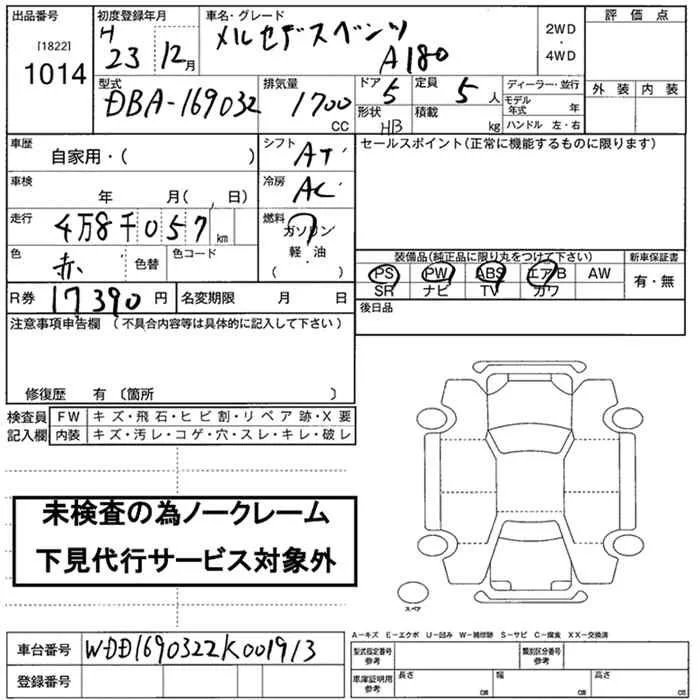 出品番号
[1822]
1014
初度登録年月
H
23 12月
車名・グレード
メルセデスベンツ
A180
2WD
・
4WD
評価点
外装 内装
型式
DBA-169032
排気量
1700
CC
ドア 5
形状 HB
定員 5 人
積載 kg
ディーラー・並行
モデル年式 年
ハンドル 左・右
車歴
自家用・( )
シフト
AT
セールスポイント(正常に機能するものに限ります)
車検
年 月( , 日)
冷房
AC
走行
4万8千057km
燃料
ガソリン
軽・油
( )
色
赤
色替
色コード
装備品(純正品に限り丸をつけて下さい)
PS PW ABS エアB AW
SR ナビ TV カワ
新車保証書
有・無
R券 17390円
名変期限 月 日
後日品
注意事項申告欄(不具合内容等は具体的に記入して下さい)
修復歴 有 〔箇所 〕
検査員
記入欄
FW キズ・飛石・ヒビ割・リペア跡・X要
内装 キズ・汚レ・コゲ・穴・スレ・キレ・破レ
未検査の為ノークレーム
下見代行サービス対象外
スペア
A-キズ E-エクボ U-凹み W-補修跡 S-サビ C-腐食 XX-交換済
車台番号 WDD1690322K001913
登録番号
型式指定番号
参考
類別区分番号
参考
車庫証明用
参考
長さ cm
幅 cm
高さ cm